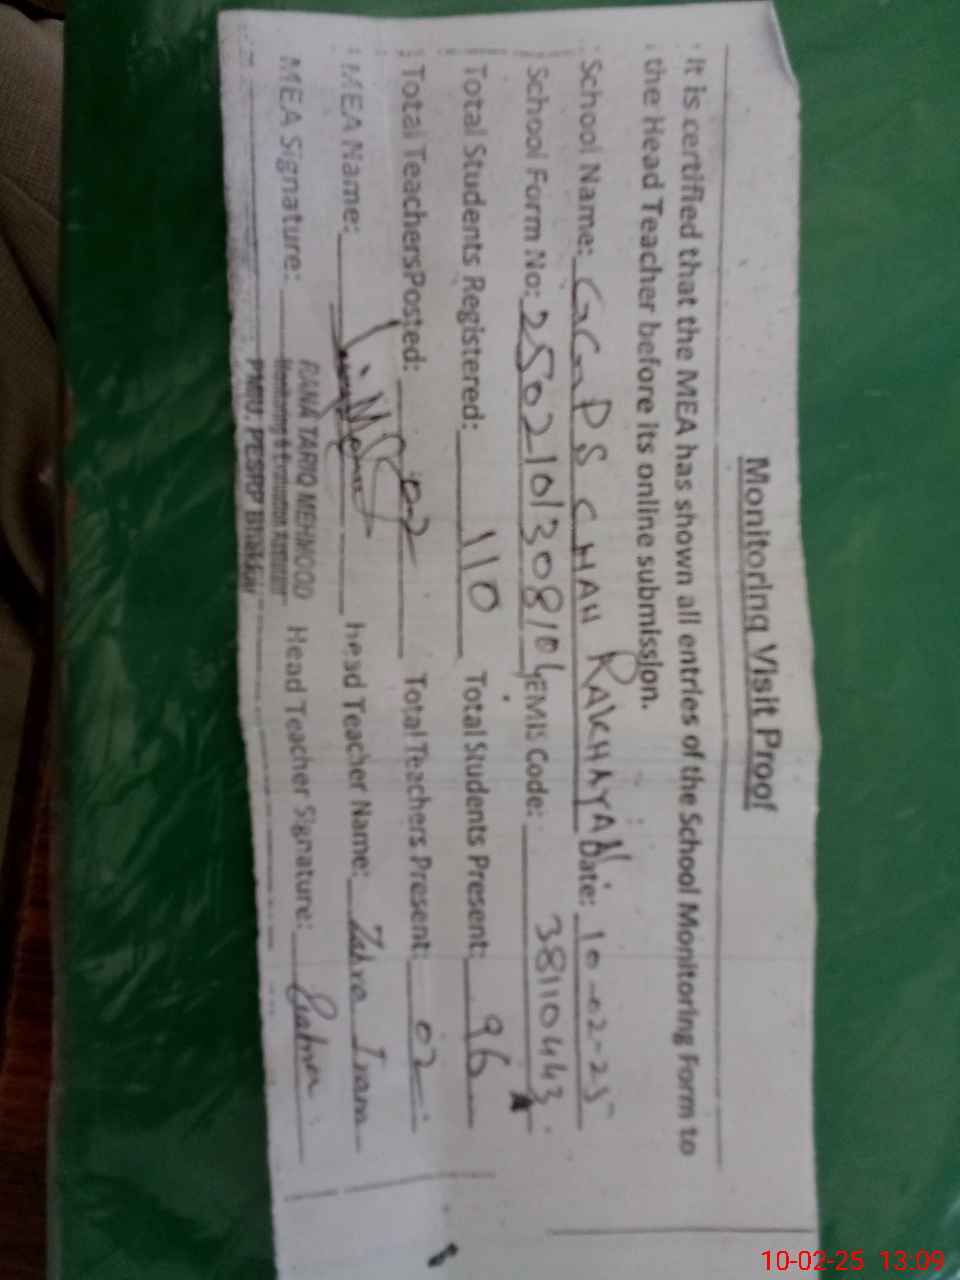 Monitoring Visit Proof
It is certified that the MEA has shown all entries of the School Monitoring Form to
the Head Teacher before its online submission.
School Name: GGPS CHAH RAKHAYAN Date: 10-02-25
School Form No: 2502101308104 EMIS Code: 38110443
Total Students Registered: 110 Total Students Present: 96
Total TeachersPosted: 02 Total Teachers Present: 02
MEA Name: Head Teacher Name: Zahra Iram
MEA Signature: Head Teacher Signature:
RANA TARIQ MEHMOOD
Monitoring & Evaluation Assistant
PMIU, PESRP Bhakkar
10-02-25 13:09